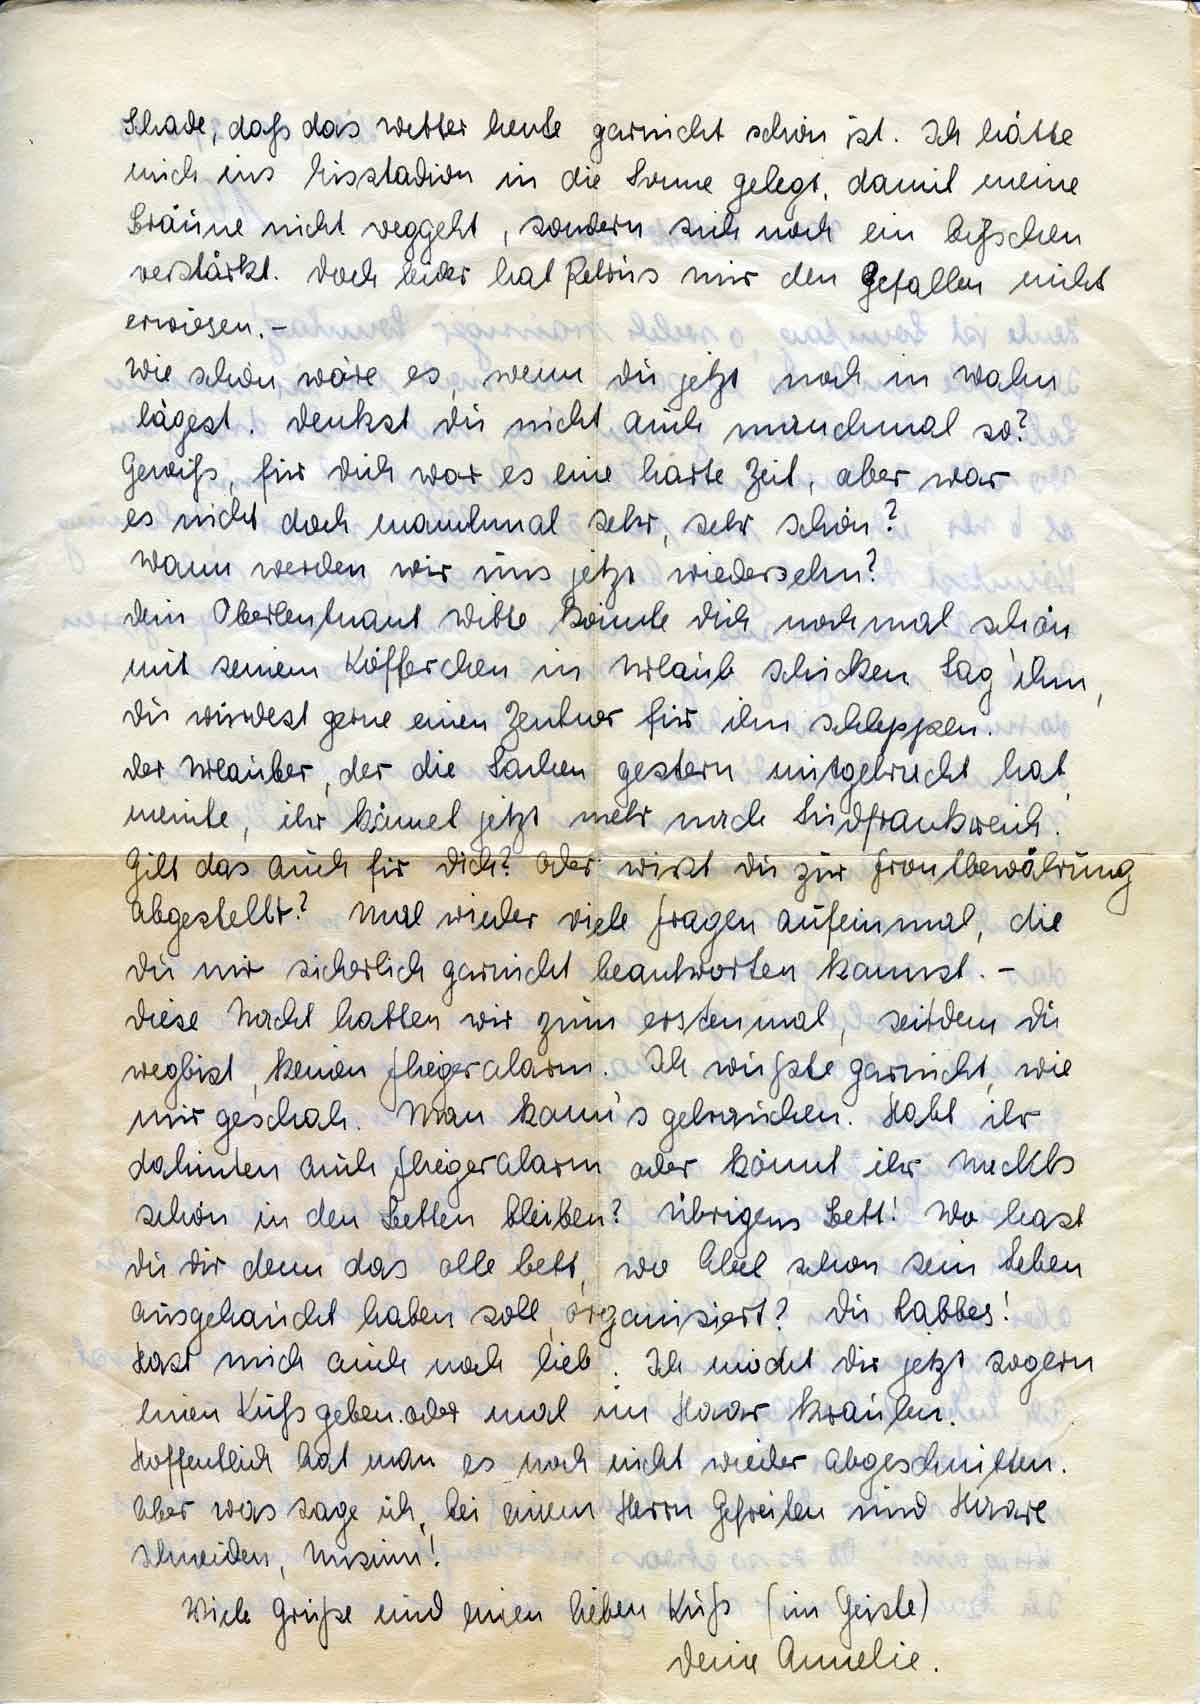 Schade, daß das Wetter heute garnicht schön ist. Ich hätte
mich ins Eisstadion in die Sonne gelegt, damit meine
Bräune nicht weggeht, sondern sich noch ein bißchen
verstärkt. Doch leider hat Petrus mir den Gefallen nicht
erwiesen.-
Wie schön wäre es, wenn du jetzt noch in Wahn
lägest. Denkst du nicht auch manchmal so?
Gewiß, für dich war es eine harte Zeit, aber war
es nicht doch manchmal sehr, sehr schön?
Wann werden wir uns jetzt wiedersehn?
Dein Oberleutnant Witte könnte dich nochmal schön
mit seinem Köfferchen in Urlaub schicken. Sag' ihm,
du würdest gerne einen Zentner für ihn schleppen.
Der Urlauber, der die Sachen gestern mitgebracht hat,
meinte, ihr kämet jetzt mehr nach Südfrankreich.
Gilt das auch für dich? Oder wirst du zur Frontbewährung
abgestellt? Mal wieder viele Fragen aufeinmal, die
du mir sicherlich garnicht beantworten kannst.-
Diese Nacht hatten wir zum erstenmal, seitdem du
wegbist, keinen Fliegeralarm. Ich wußte garnicht, wie
mir geschah. Man kann's gebrauchen. Habt ihr
dahinten auch Fliegeralarm oder könnt ihr nachts
schön in den Betten bleiben? Übrigens Bett! Wo hast
du dir denn das olle Bett, wo Abel schon sein Leben
ausgehaucht haben soll, organisiert? Du Labbes!
Hast mich auch noch lieb. Ich möcht dir jetzt sogern
einen Kuß geben oder mal im Haar kraulen.
Hoffentlich hat man es noch nicht wieder abgeschnitten.
Aber was sage ich, bei einem Herrn Gefreiten und Haare
schneiden, Unsinn!
Viele Grüße und einen lieben Kuß (im Geiste)
Deine Annelie.